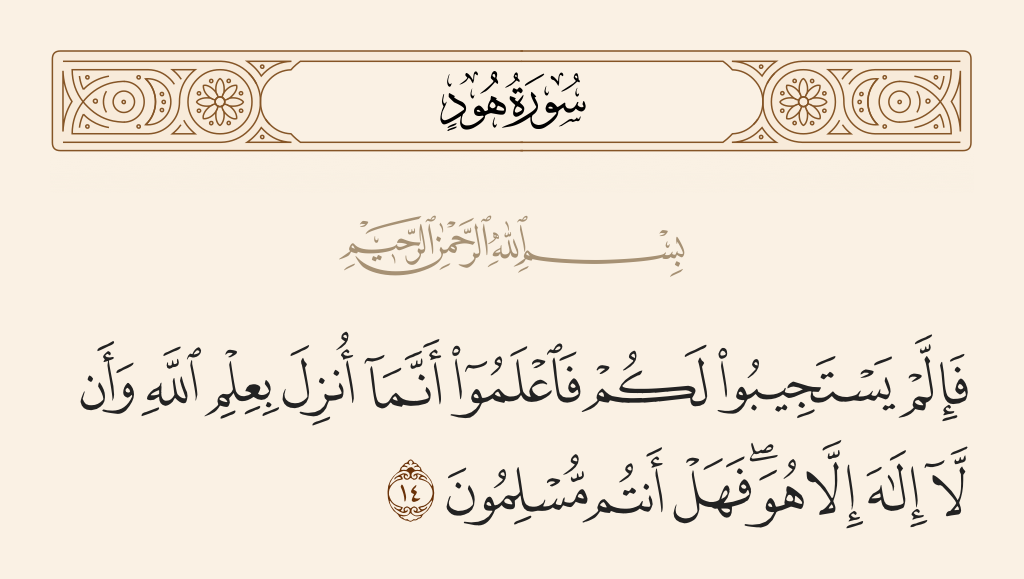 سُورَةُ هُودٍ
بِسْمِ ٱللَّهِ ٱلرَّحْمَٰنِ ٱلرَّحِيمِ
فَإِلَّمْ يَسْتَجِيبُوا۟ لَكُمْ فَٱعْلَمُوٓا۟ أَنَّمَآ أُنزِلَ بِعِلْمِ ٱللَّهِ وَأَن
لَّآ إِلَٰهَ إِلَّا هُوَ ۖ فَهَلْ أَنتُم مُّسْلِمُونَ ١٤